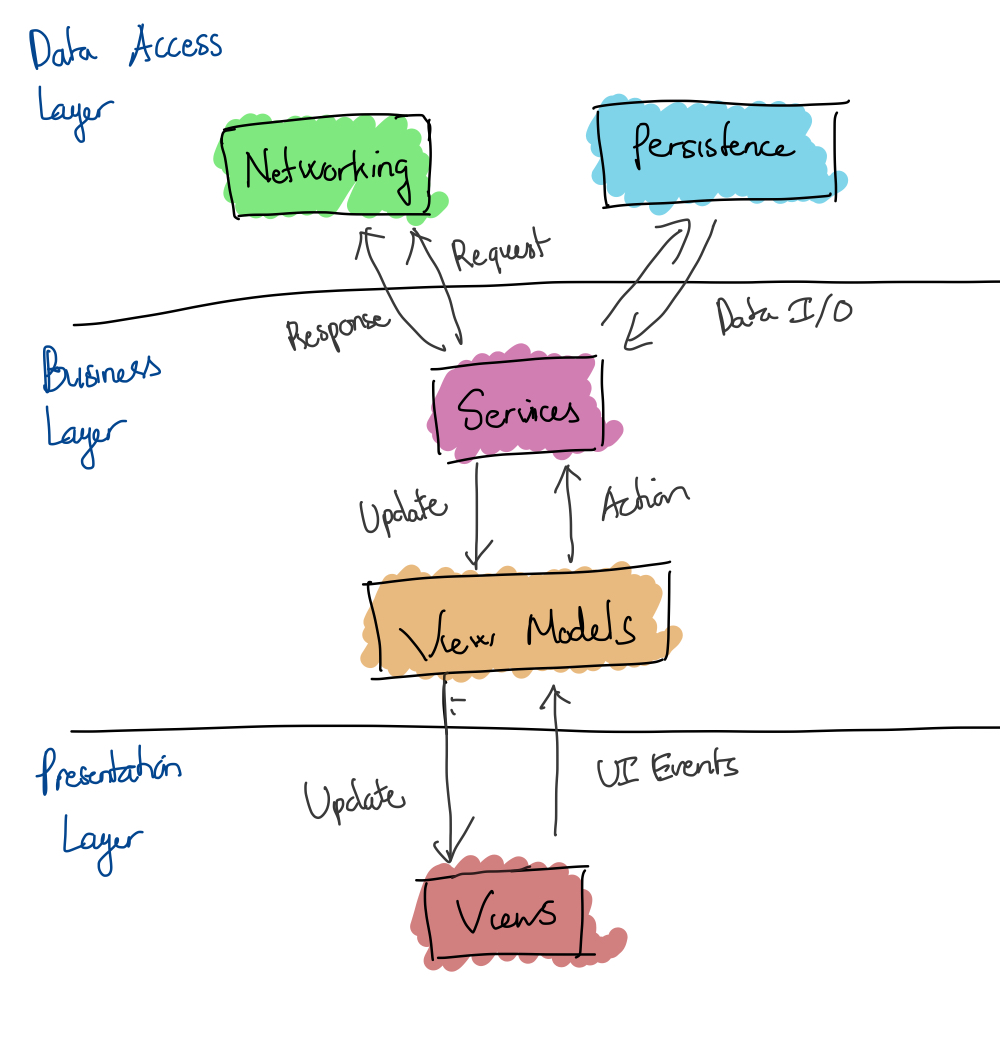 Data Access
Layer
Networking
Persistence
Request
Response
Data I/O
Business
Layer
Services
Update
Action
View Models
Presentation
Layer
Update
UI Events
Views